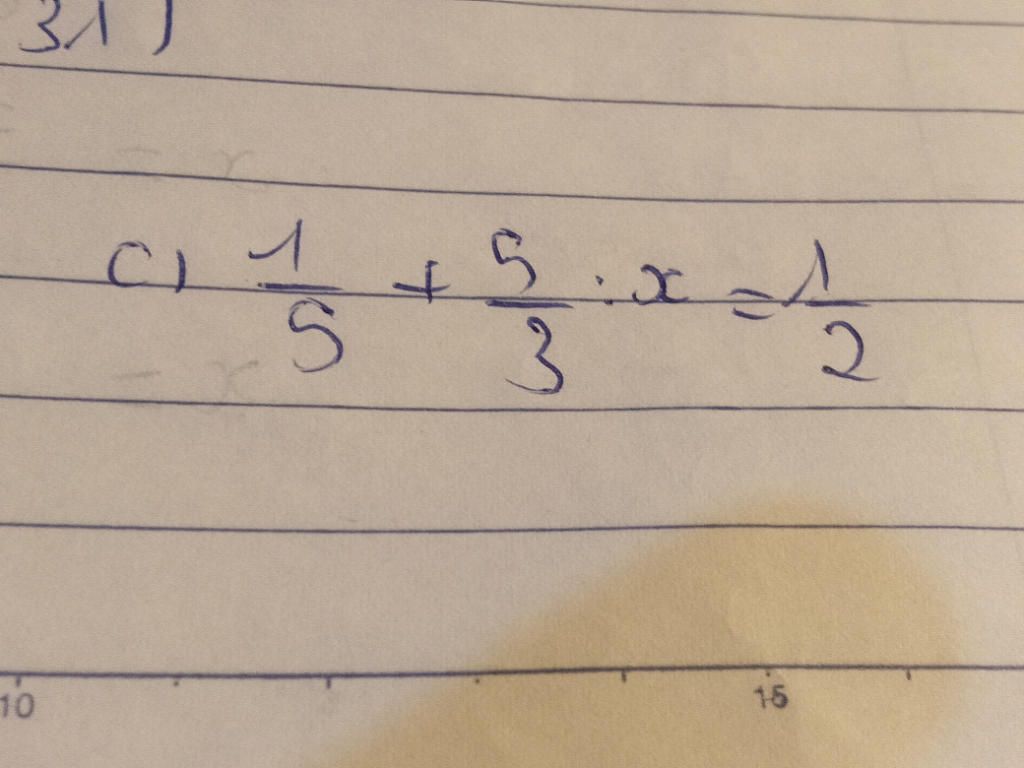 31)
c) 1/5 + 5/3 : x = 1/2
10 15